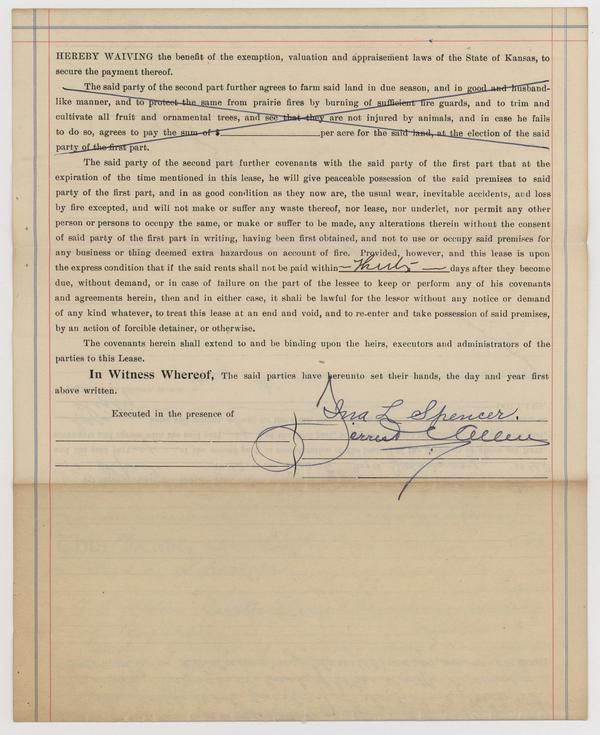 HEREBY WAIVING the benefit of the exemption, valuation and appraisement laws of the State of Kansas, to
secure the payment thereof.
The said party of the second part further agrees to farm said land in due season, and in good and husband-
like manner, and to protect the same from prairie fires by burning of sufficient fire guards, and to trim and
cultivate all fruit and ornamental trees, and see that they are not injured by animals, and in case he fails
to do so, agrees to pay the sum of $ per acre for the said land, at the election of the said
party of the first part.
The said party of the second part further covenants with the said party of the first part that at the
expiration of the time mentioned in this lease, he will give peaceable possession of the said premises to said
party of the first part, and in as good condition as they now are, the usual wear, inevitable accidents, and loss
by fire excepted, and will not make or suffer any waste thereof, nor lease, nor underlet, nor permit any other
person or persons to occupy the same, or make or suffer to be made, any alterations therein without the consent
of said party of the first part in writing, having been first obtained, and not to use or occupy said premises for
any business or thing deemed extra hazardous on account of fire. Provided, however, and this lease is upon
the express condition that if the said rents shall not be paid within days after they become
due, without demand, or in case of failure on the part of the lessee to keep or perform any of his covenants
and agreements herein, then and in either case, it shall be lawful for the lessor without any notice or demand
of any kind whatever, to treat this lease at an end and void, and to re-enter and take possession of said premises,
by an action of forcible detainer, or otherwise.
The covenants herein shall extend to and be binding upon the heirs, executors and administrators of the
parties to this Lease.
In Witness Whereof, The said parties have hereunto set their hands, the day and year first
above written.
Executed in the presence of
Ina L Spencer.
Allen